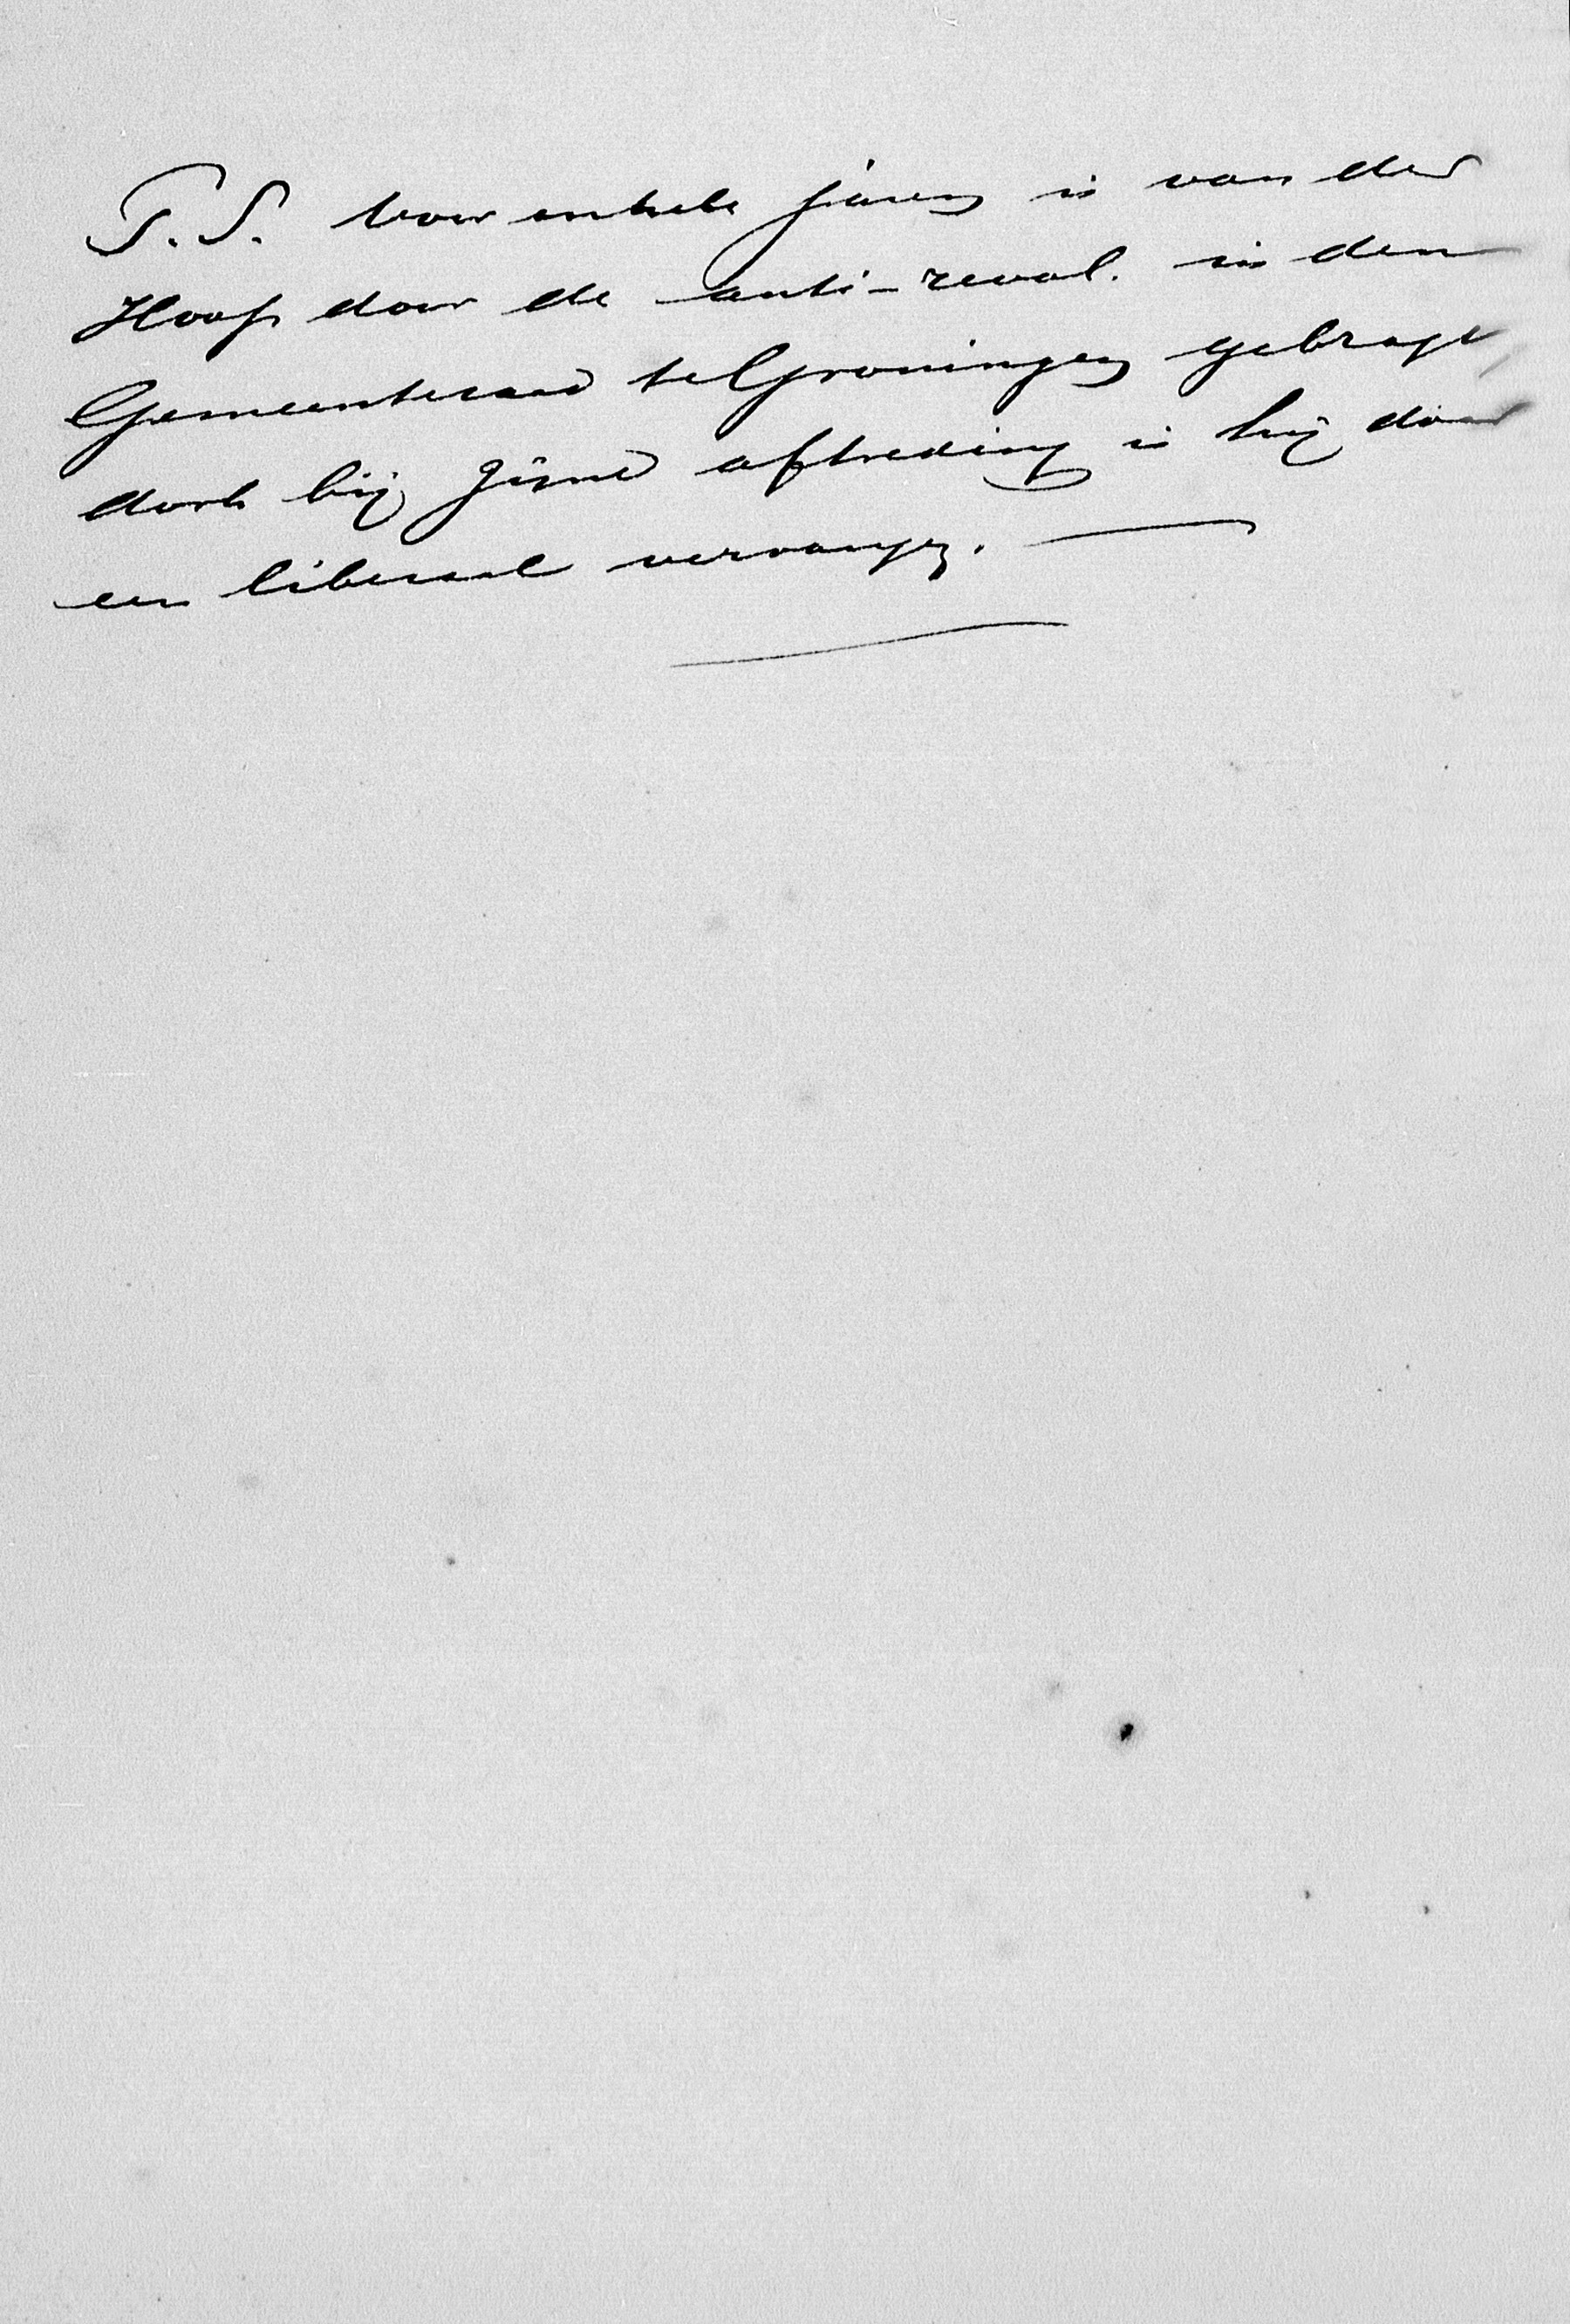 P.S. Voor enkele jaren is van der
Hoop door de anti-revol. in den
Gemeenteraad te Groningen gebragt
doch bij zijne aftreding is hij door
een liberaal vervangen.